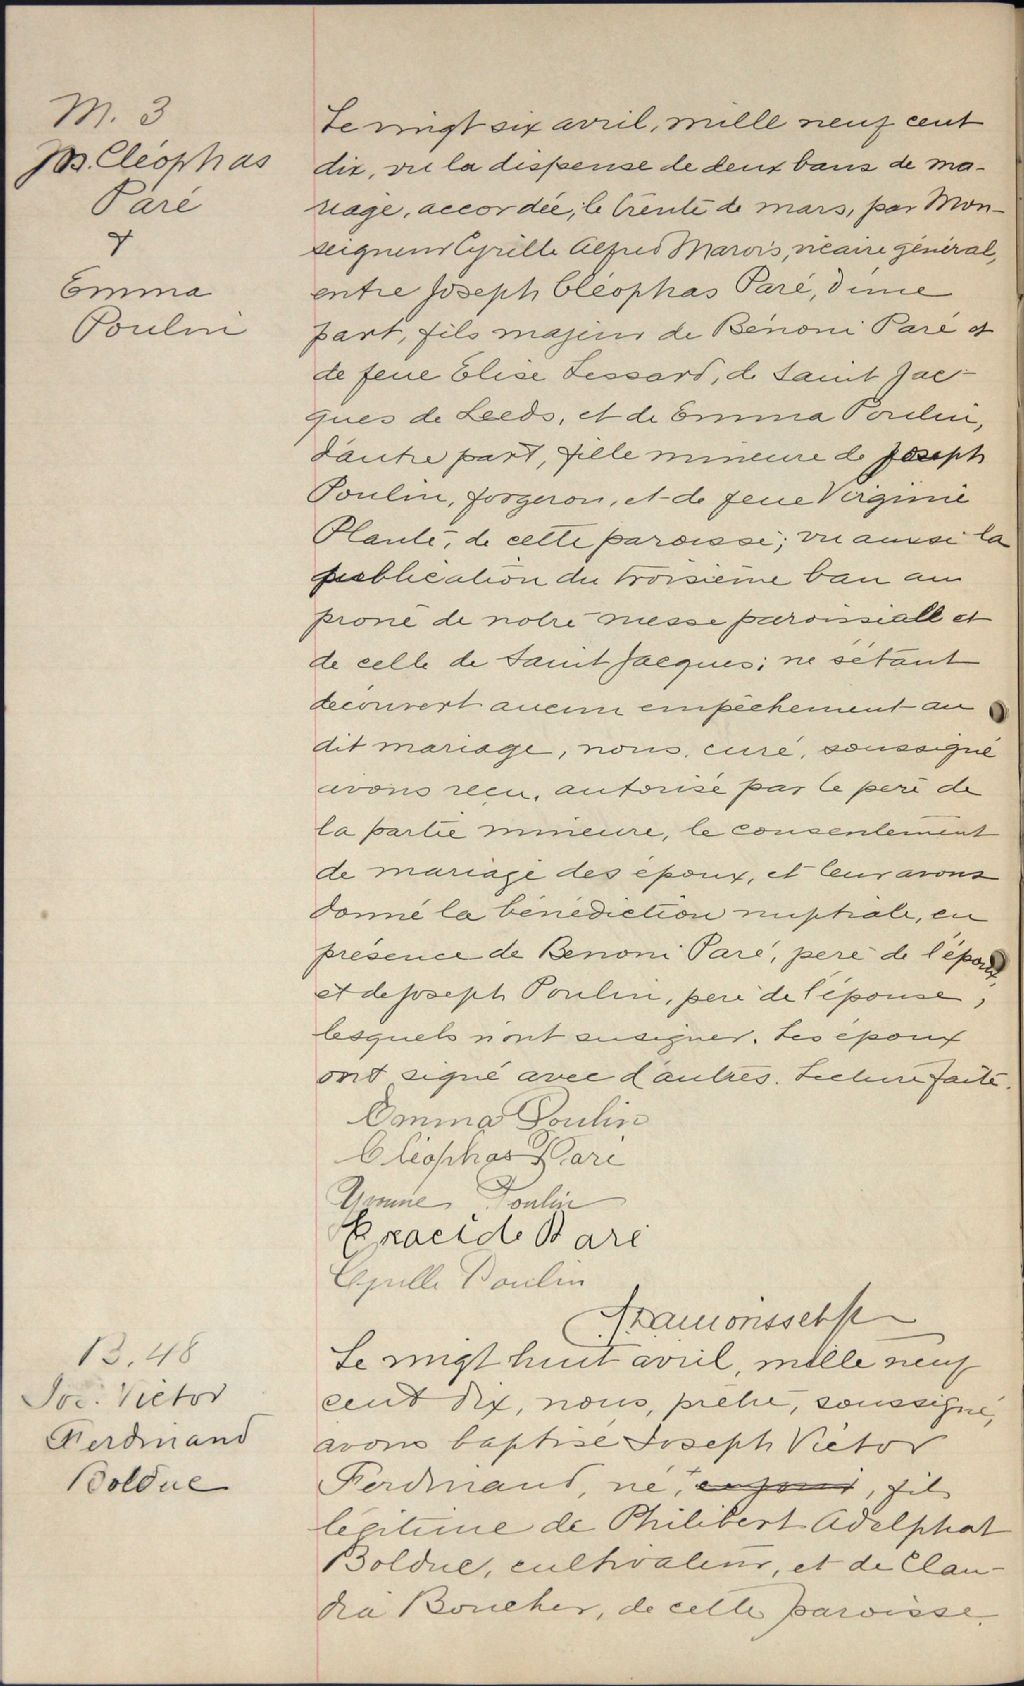 M. 3
Jos. Cléophas
Paré
&
Emma
Poulin
Le vingt six avril, mille neuf cent
dix, vu la dispense de deux bans de ma-
riage, accordée, le trente de mars, par Mon-
seigneur Cyrille Alfred Marois, vicaire général,
entre Joseph Cléophas Paré, d'une
part, fils majeur de Bénoni Paré et
de feue Elise Lessard, de Saint Jac-
ques de Leeds, et de Emma Poulin,
d'autre part, fille mineure de Joseph
Poulin, forgeron, et de feue Virginie
Plante, de cette paroisse; vu aussi la
publication du troisième ban au
prone de notre messe paroissiale et
de celle de Saint Jacques; ne s'étant
découvert aucun empêchement au
dit mariage, nous, curé, soussigné
avons reçu, autorisé par le père de
la partie mineure, le consentement
de mariage des époux, et leur avons
donné la bénédiction nuptiale, en
présence de Benoni Paré, père de l'époux,
et de Joseph Poulin, père de l'épouse,
lesquels n'ont su signer. Les époux
ont signé avec d'autres. Lecture faite.
Emma Poulin
Cléophas Paré
Yvonne Poulin
Exacide Paré
Cyrille Poulin
B. 48
Jos. Victor
Ferdinand
Bolduc
Le vingt huit avril, mille neuf
cent dix, nous, prêtre, soussigné,
avons baptisé Joseph Victor
Ferdinand, né, + , fils
légitime de Philibert Adelphat
Bolduc, cultivateur, et de Clau-
dia Boucher, de cette paroisse.